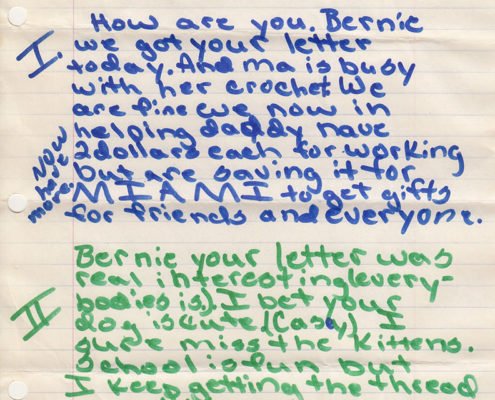 How are you. Bernie
I. we got your letter
today. And ma is busy
with her crochet We
are fine we now in
helping daddy have
2dollars each for working
but are saving it for
MIAMI to get gifts
for friends and everyone.
NOW
have
more.
Bernie your letter was
real interesting(every-
bodies is) I bet your
II dog is cute (Casey) I
sure miss the kittens.
School is fun but
I keep getting the thread